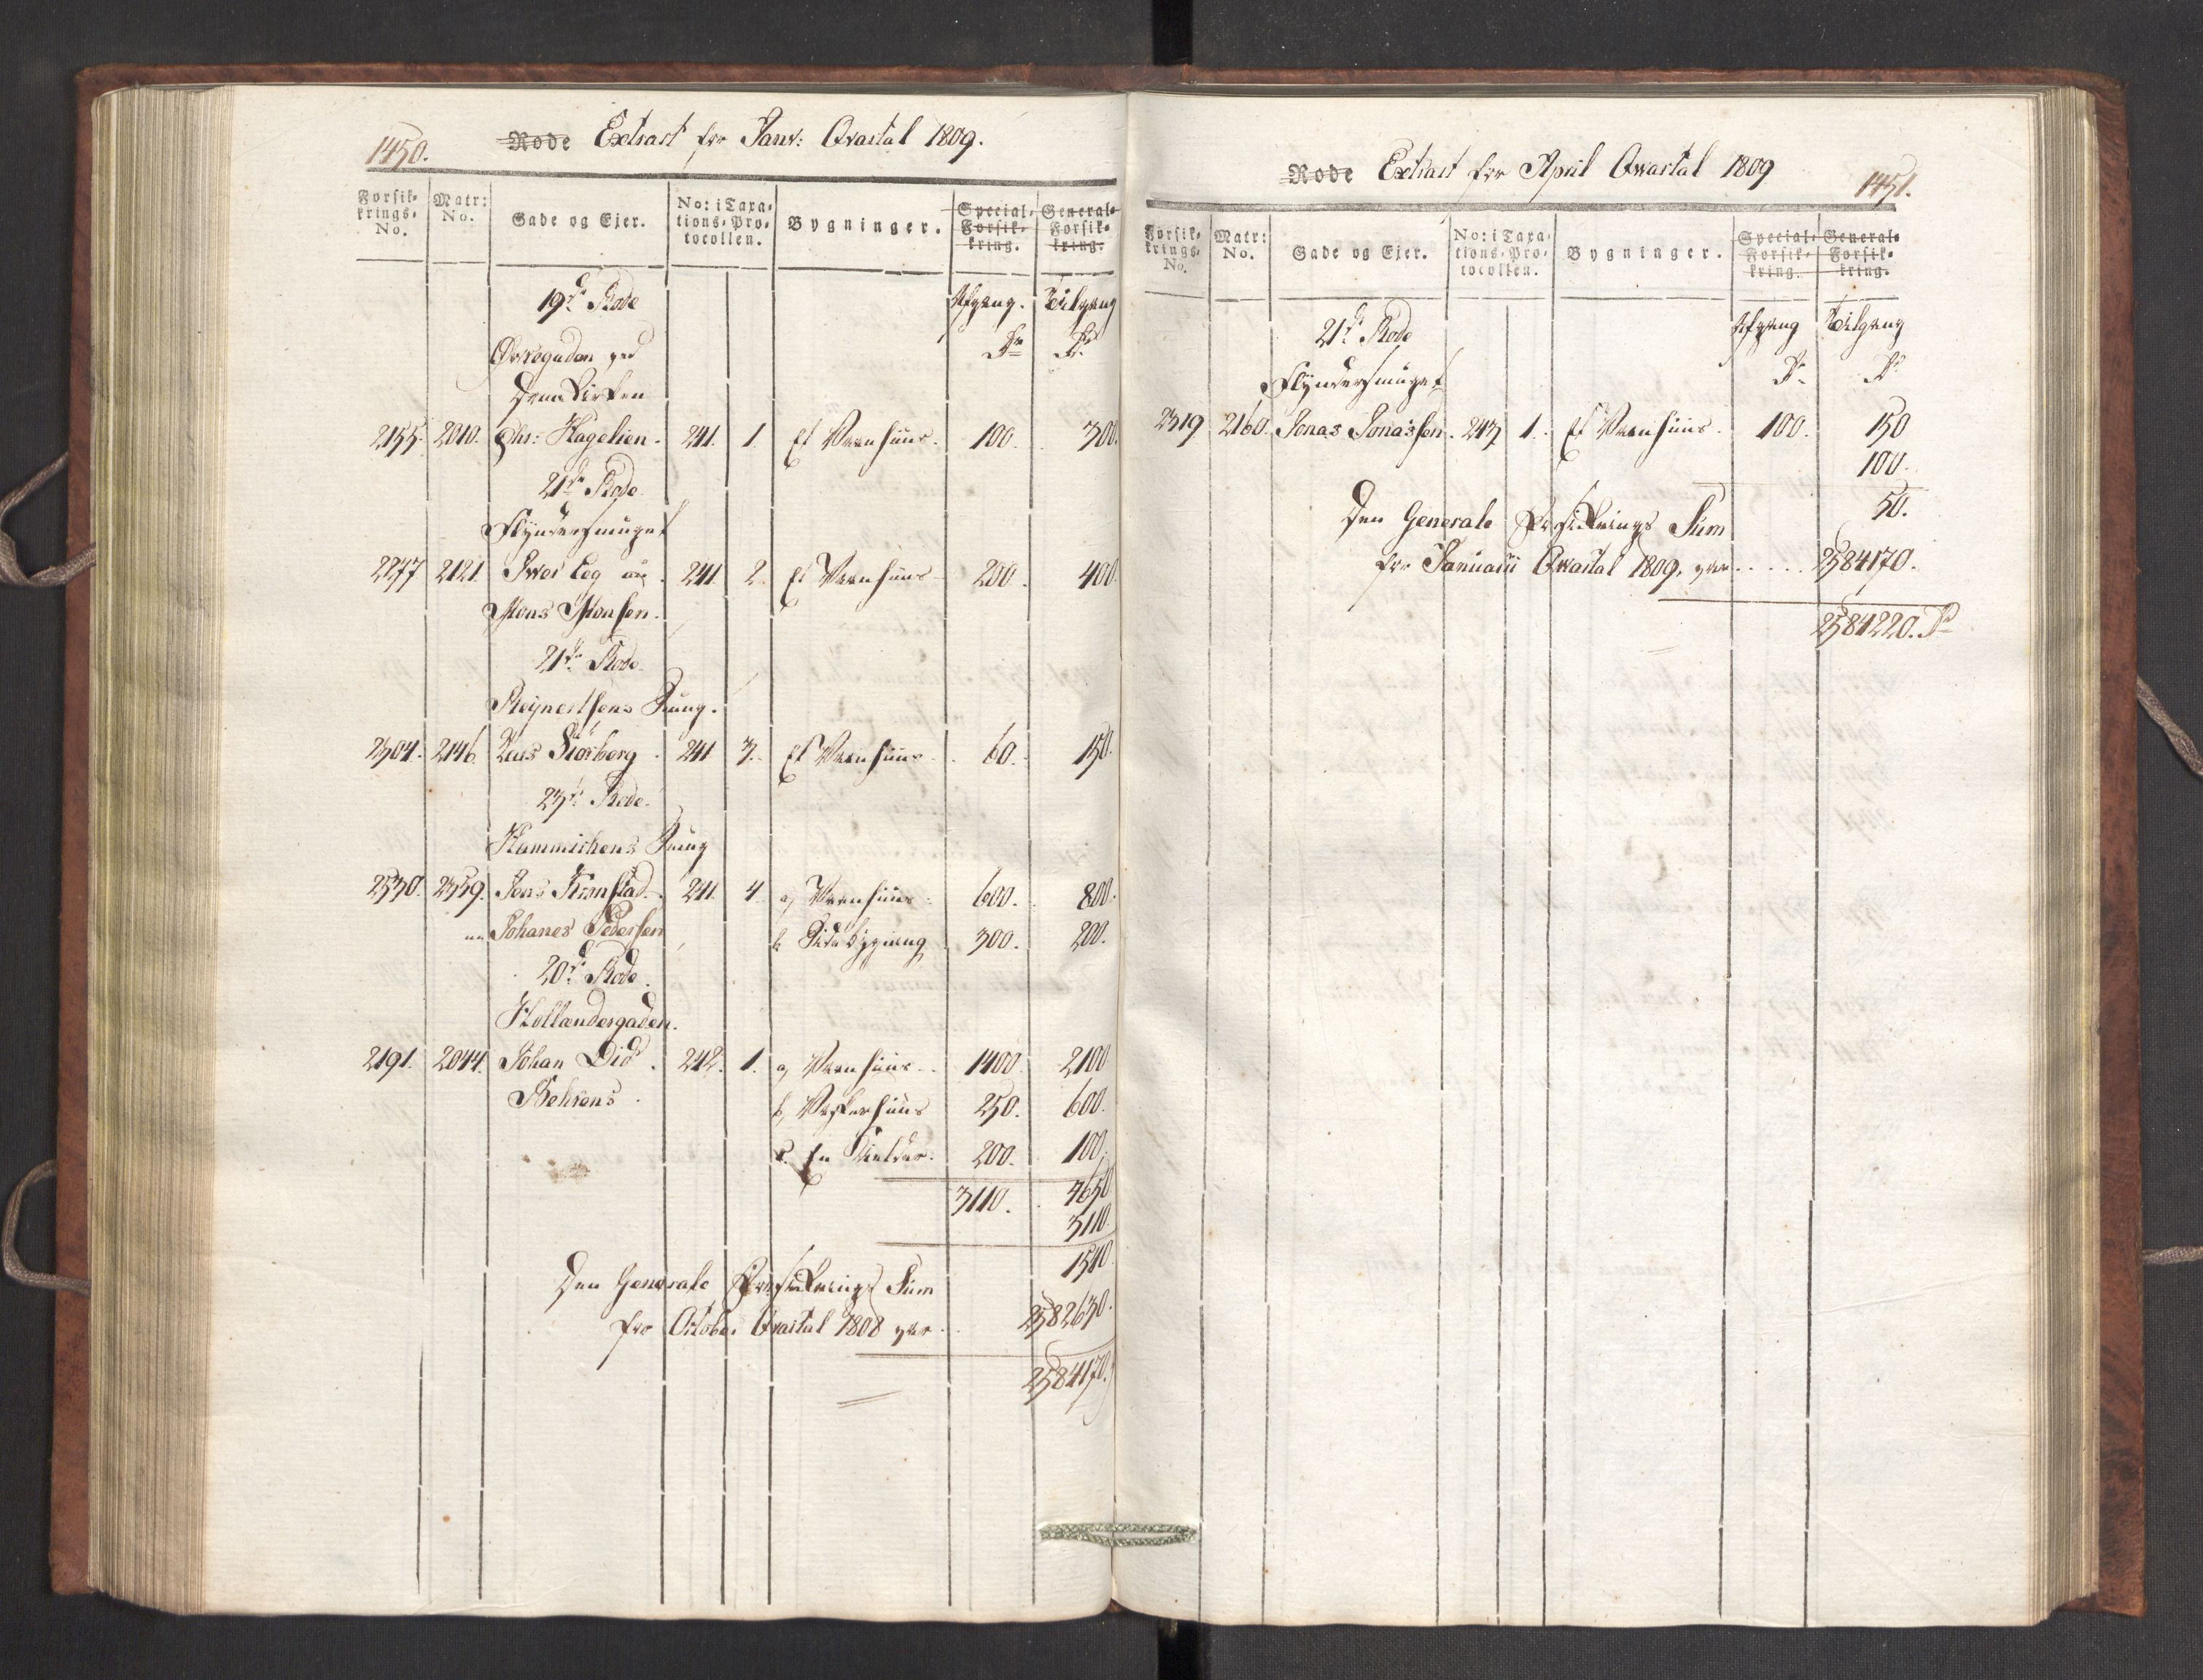 1450.
Rode Extract for Janv: Qvartal 1809.
Forsik-
krings-
No.
Matr:
No.
Gade og Ejer.
No: i Taxa-
tions-Pro-
tocollen.
Bygninger.
Special-
Forsik-
kring.
General-
Forsik-
kring.
19de Rode Afgang. Tilgang
Øvregaden ved Rd Rd
Dom Kirken
2155. 2010. Chr: Hagelien. 241. 1. Et Vaanhuus. 100. 300.
21de Rode
Flyndersmuget
2277 2121. Iver Eeg og 241 2. Et Vaanhuus 200. 400
Mons Monsen.
21de Rode.
Reijnertsens Smug.
2304. 2146. Lars Storberg 241 3. Et Vaanhuus 60. 150.
23de Rode.
Hammichens Smug
2530. 2359. Jens Kronstad. 241. 4. a, Vaanhuus 600. 800.
Johanes Pedersen b Sidebygning 300. 200.
20de Rode.
Hollændergaden.
2191. 2044. Johan Did. 242. 1. a, Vaanhuus 1400. 2100
Behrens b, Vaskerhuus 250. 600.
c. En Kielder. 200. 100.
3110. 4650
3110.
1540
Den Generale Forsikrings Sum
for October Qvartal 1808 var 2582630.
2584170.
Rode Extract for April Qvartal 1809
1451.
Forsik-
krings-
No.
Matr:
No.
Gade og Ejer.
No: i Taxa-
tions-Pro-
tocollen.
Bygninger.
Special-
Forsik-
kring.
General-
Forsik-
kring.
21de Rode Afgang Tilgang
Flyndersmuget Rd Rd
2319 2160 Jonas Jonassen. 243 1. Et Vaanhuus 100. 150
100.
50.
Den Generale Forsikrings Sum
for Januarii Qvartal 1809, var 2584170.
2584220. Rd